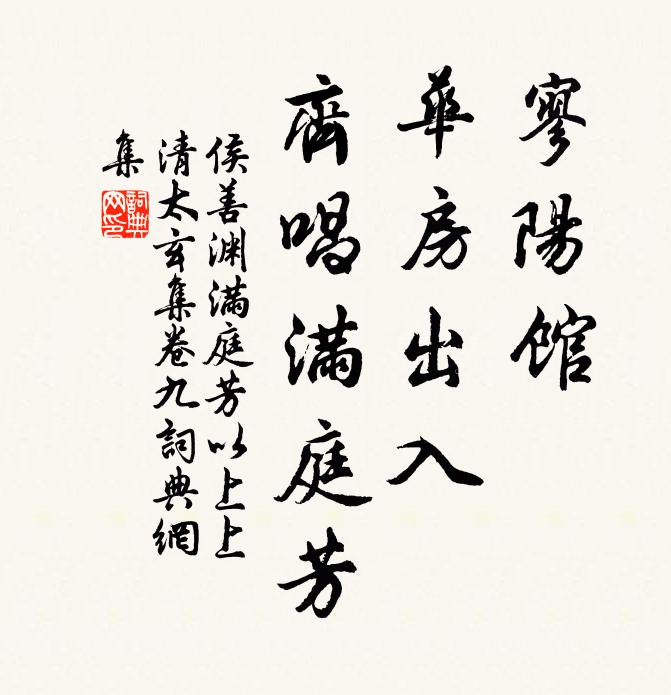 寥陽館
華房出入
齊唱滿庭芳
侯善渊滿庭芳以上上
清太玄集卷九詞典網
集
詞典網印